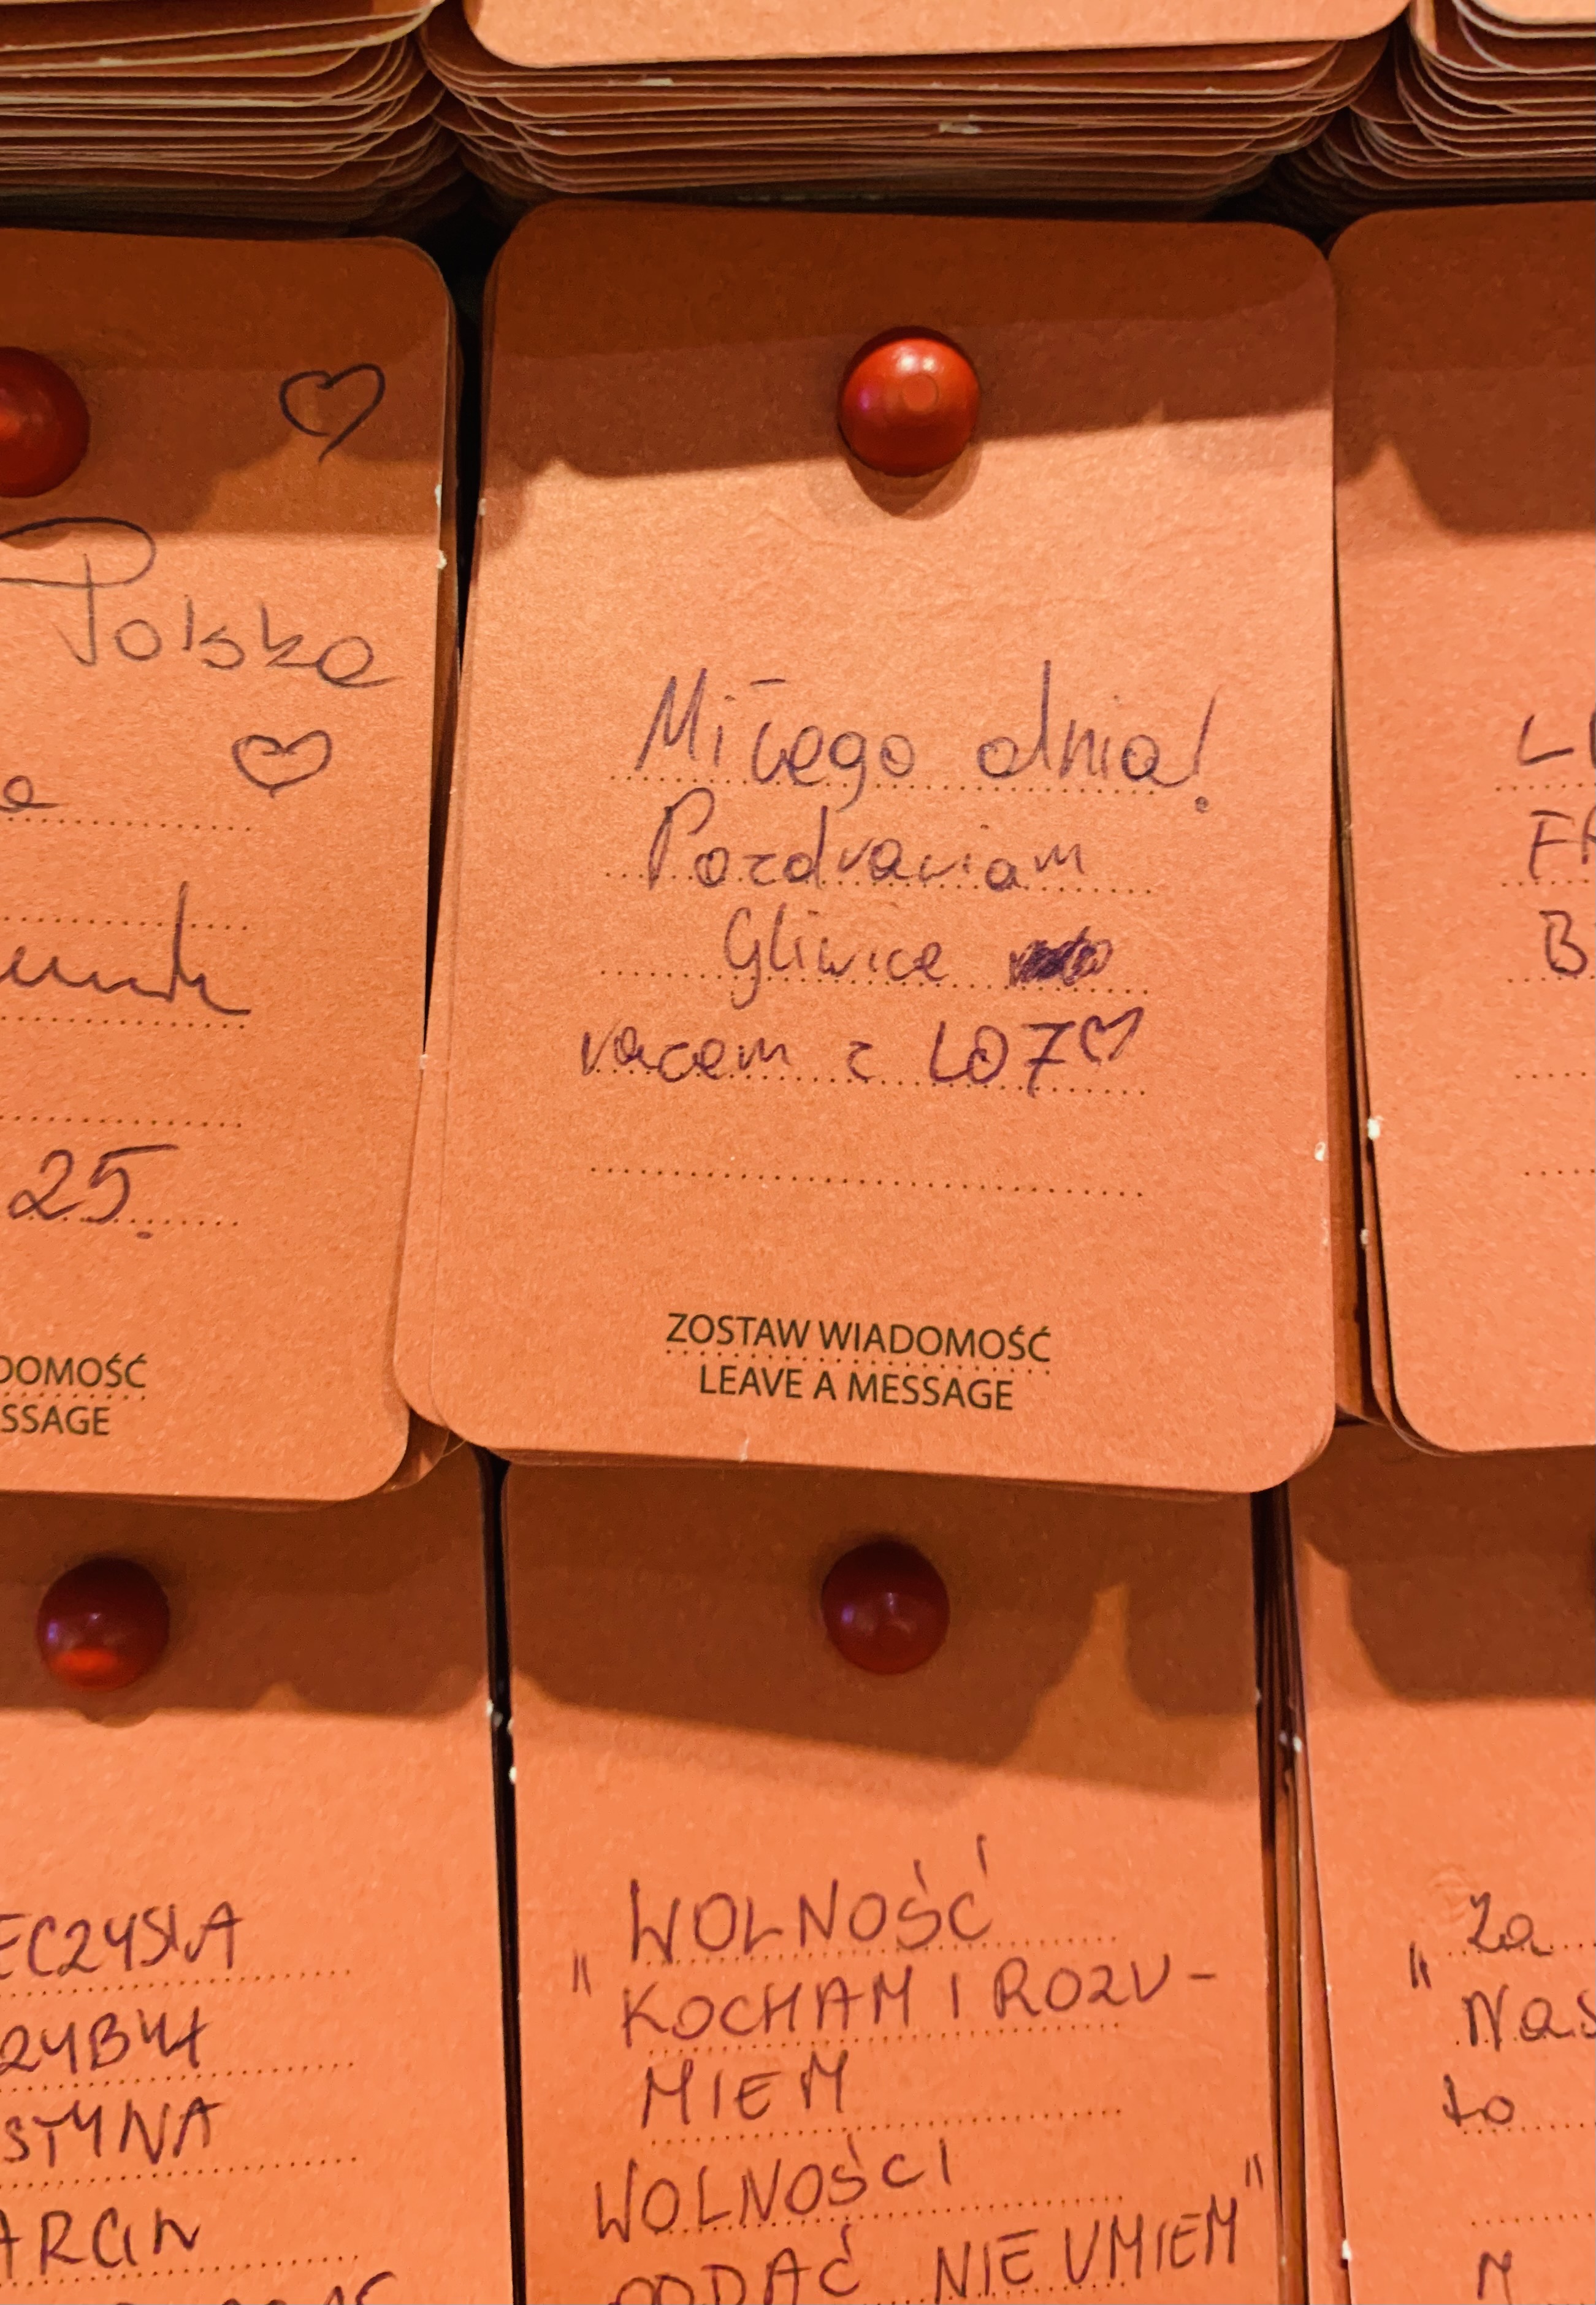 Polska
25.
DOMOŚĆ
SSAGE
Miłego dnia!
Pozdrawiam
Gliwice
razem z LO7♡
ZOSTAW WIADOMOŚĆ
LEAVE A MESSAGE
B
ECZYSŁA
STYNA
ARCIN
WOLNOŚĆ
"KOCHAM I ROZU-
MIEM
WOLNOŚCI
ODDAĆ NIE UMIEM"
"Za
Nas
to